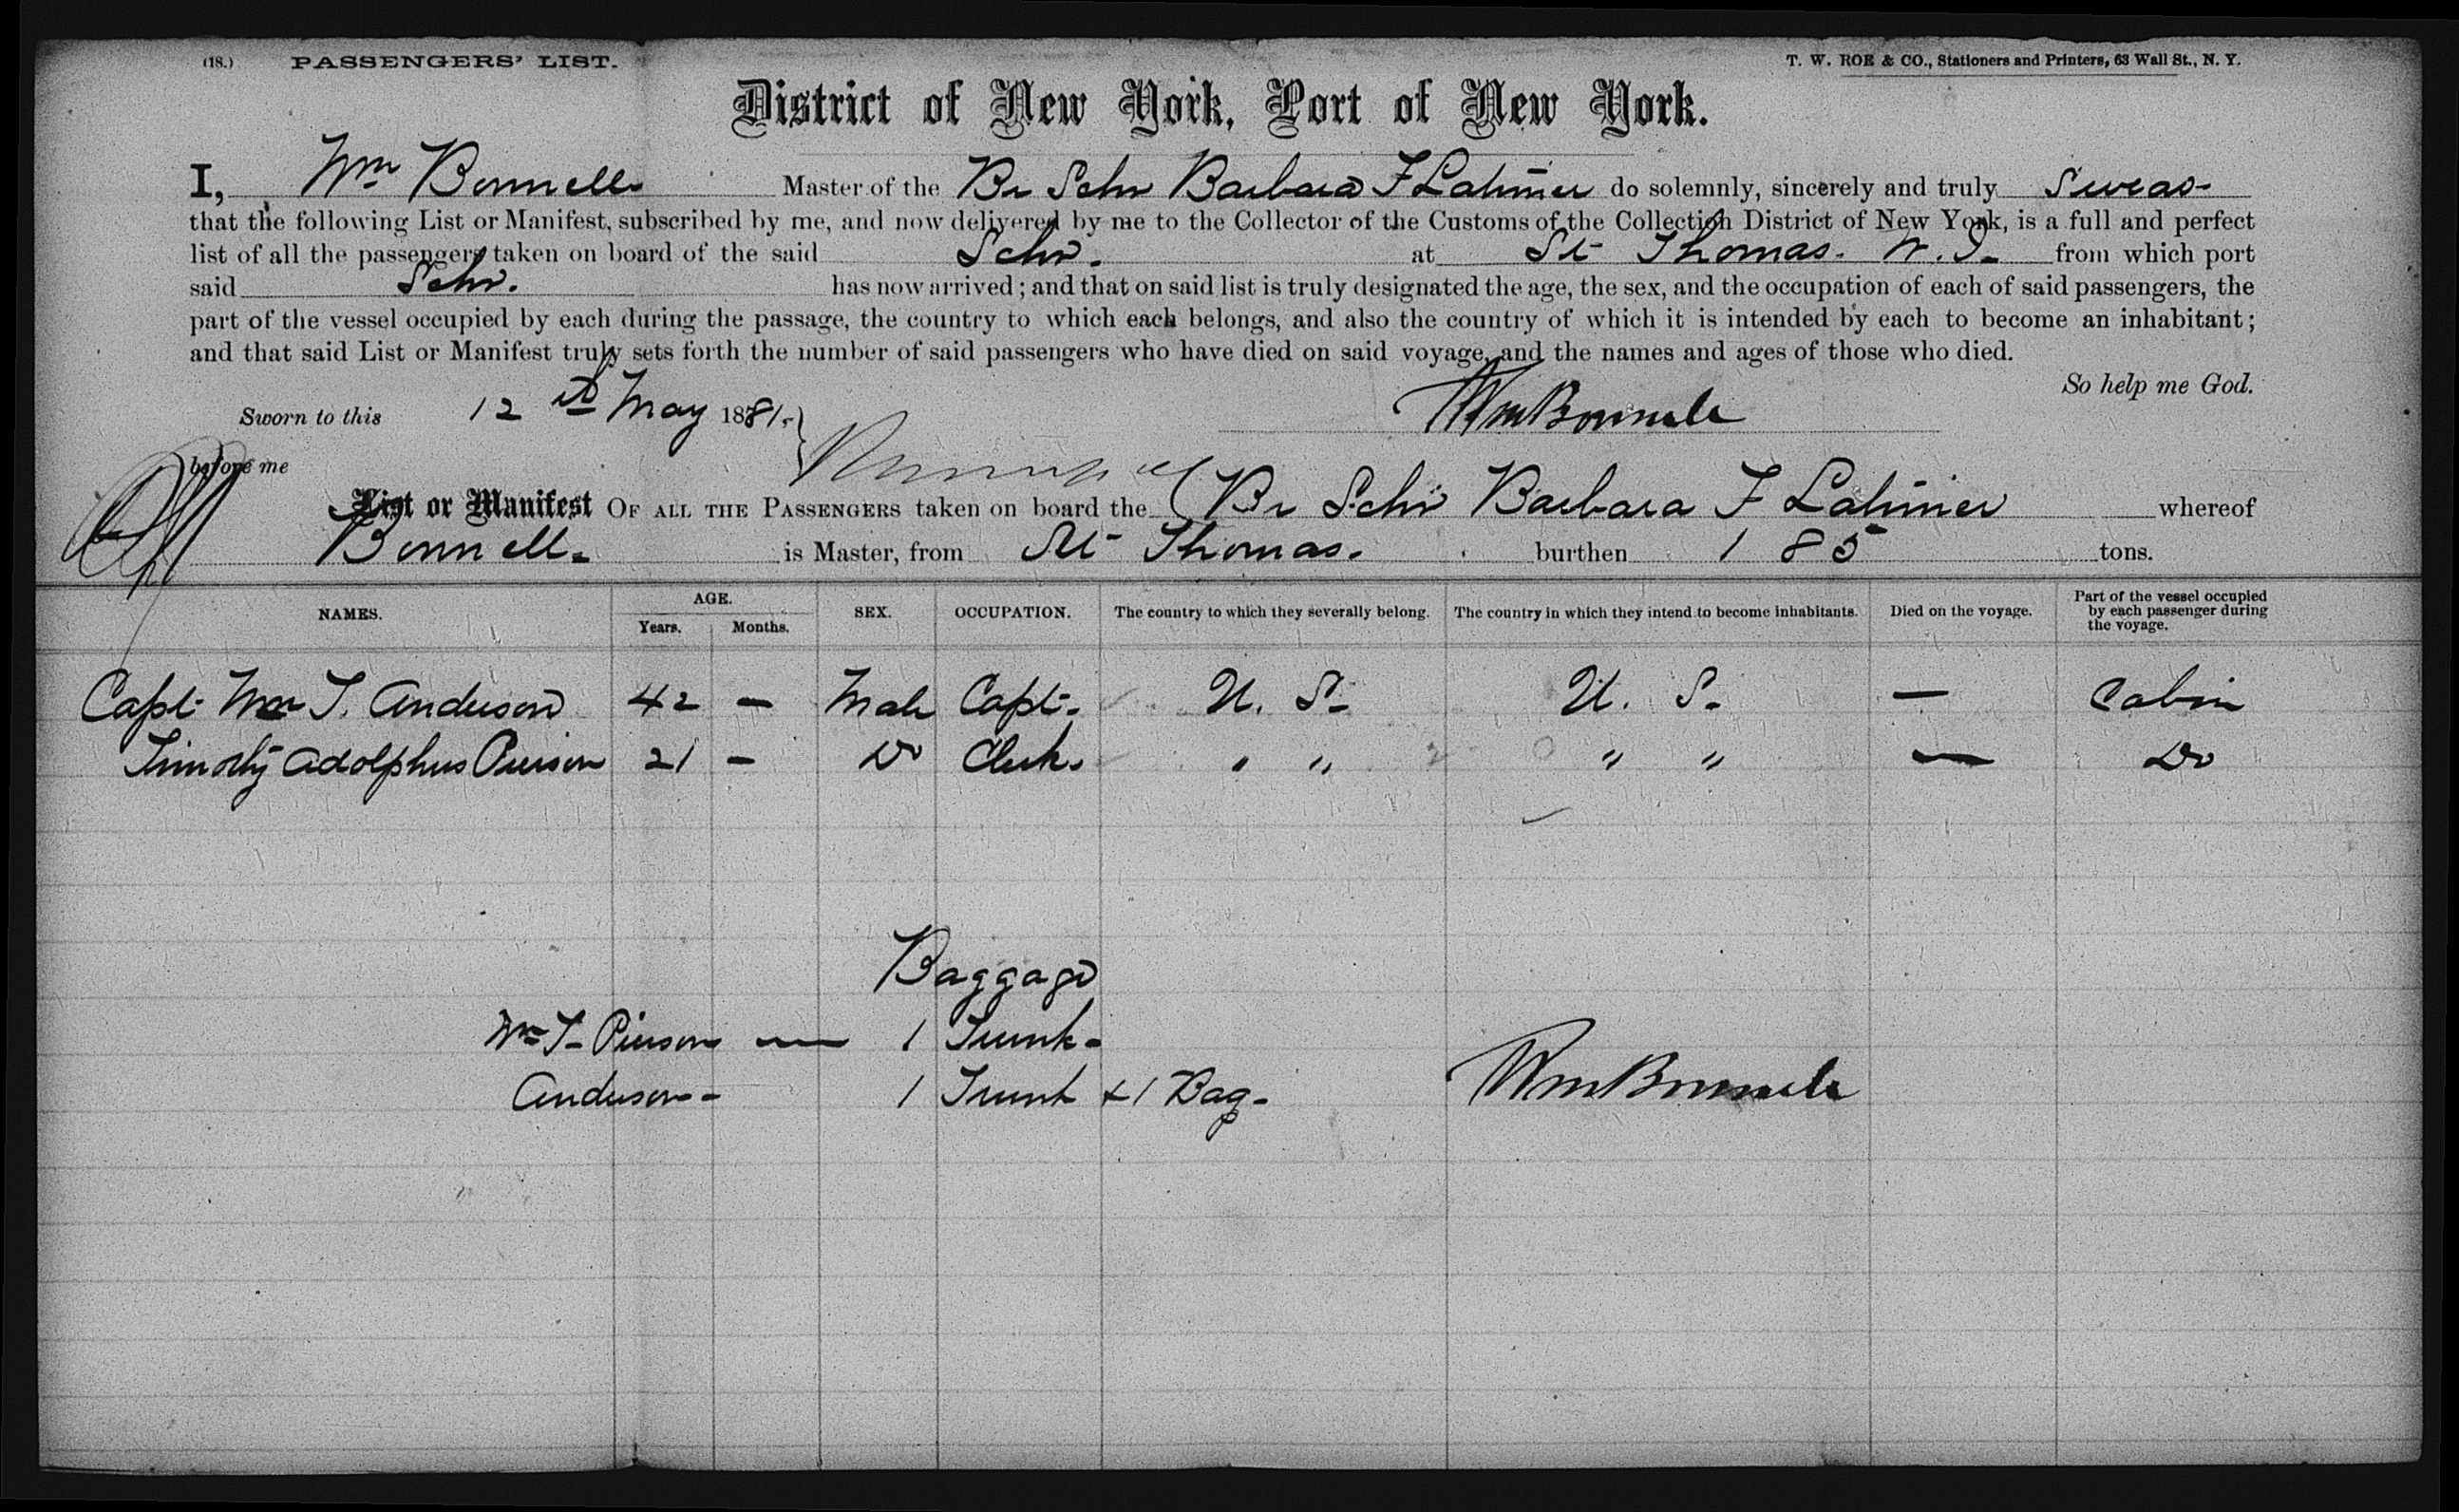 (18.) PASSENGERS' LIST. T. W. ROE & CO., Stationers and Printers, 63 Wall St., N. Y.
District of New York, Port of New York.
I, Wm Bonnell Master of the Br Schr Barbara F Latimer do solemnly, sincerely and truly swear
that the following List or Manifest, subscribed by me, and now delivered by me to the Collector of the Customs of the Collection District of New York, is a full and perfect
list of all the passengers taken on board of the said Schr. at St Thomas. W. I. from which port
said Schr. has now arrived; and that on said list is truly designated the age, the sex, and the occupation of each of said passengers, the
part of the vessel occupied by each during the passage, the country to which each belongs, and also the country of which it is intended by each to become an inhabitant;
and that said List or Manifest truly sets forth the number of said passengers who have died on said voyage, and the names and ages of those who died.
So help me God.
Sworn to this 12th May 1881. Wm Bonnell
before me
List or Manifest OF ALL THE PASSENGERS taken on board the Br Schr Barbara F Latimer whereof
Bonnell. is Master, from St Thomas. burthen 185 tons.
NAMES. AGE. Years. Months. SEX. OCCUPATION. The country to which they severally belong. The country in which they intend to become inhabitants. Died on the voyage. Part of the vessel occupied by each passenger during the voyage.
Capt Wm T. Anderson 42 — Male Capt. U. S. U. S. — Cabin
Timothy Adolphus Pierson 21 — Do Clerk. " " " " — Do
Baggage
Wm T. Pierson — 1 Trunk.
Anderson - 1 Trunk & 1 Bag.
Wm Bonnell